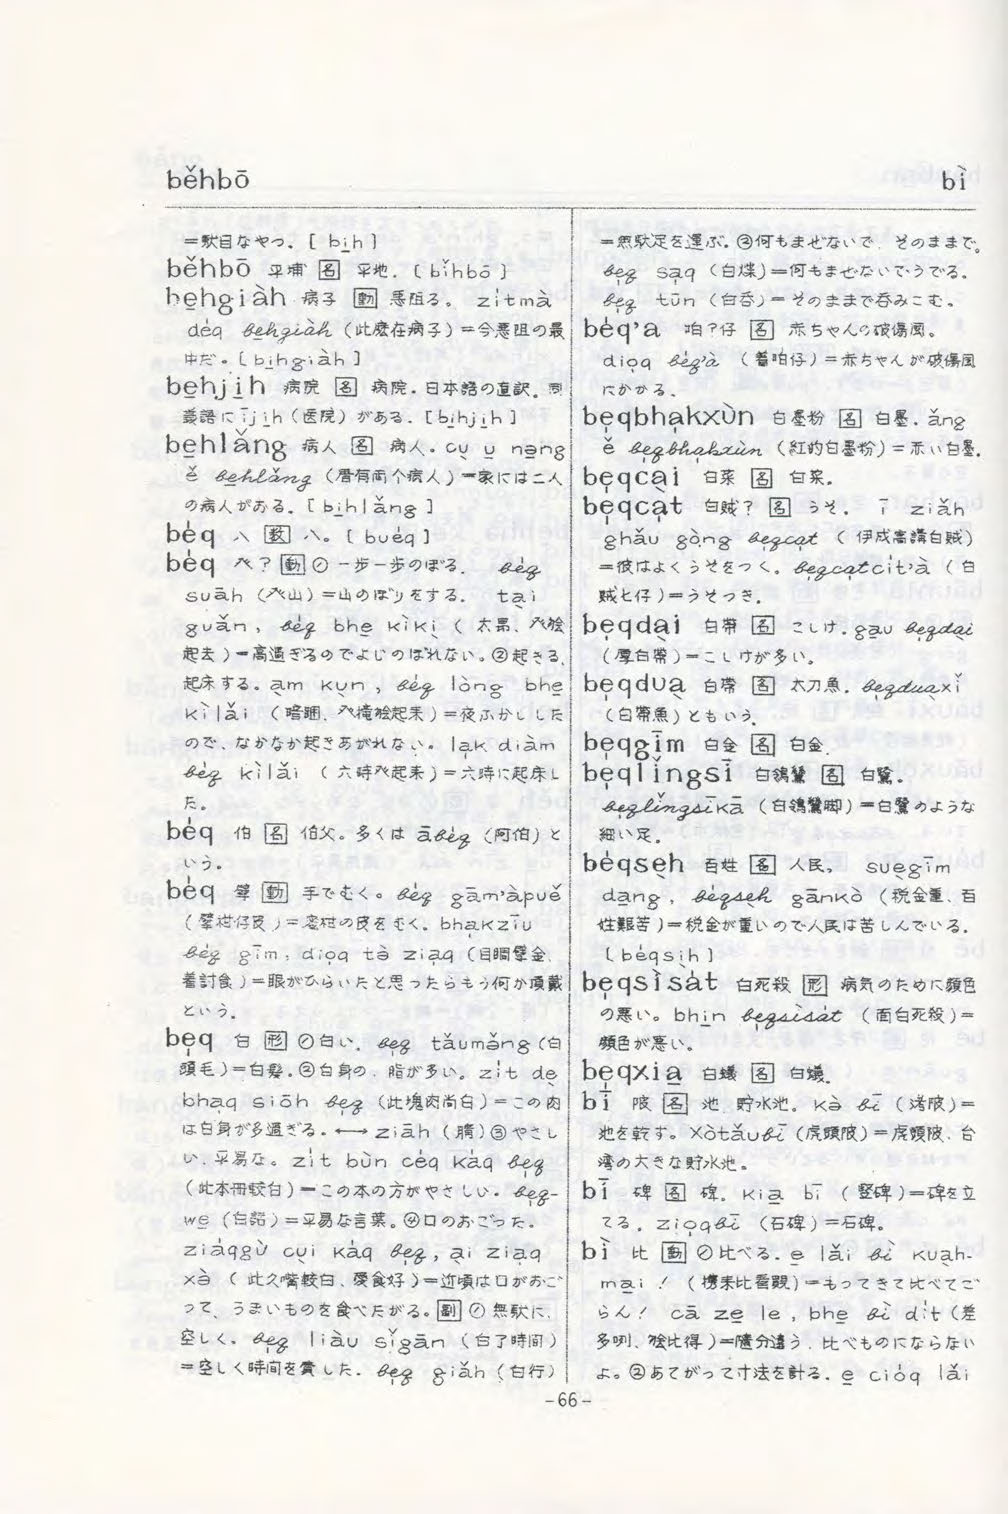 běhbō
bì
=駄目なやつ. [ bi̱h ]
běhbō 平埔 名 平地. [ bǐhbō ]
be̱hgiàh 病子 動 悪阻る。 zitmà
déq be̱hgiàh (此麼在病子)=今悪阻の最
中だ。[ bi̱hgiàh ]
be̱hji̱h 病院 名 病院. 日本語の直訳. 同
義語に ījīh (医院) がある. [ bi̱hji̱h ]
be̱hlǎng 病人 名 病人. cu̱ u̱ nn̄g
ě be̱hlǎng (厝有両个病人)=家には二人
の病人がおる. [ bi̱hlǎng ]
béq 八 数 八。 [ buéq ]
béq 動 ① 一歩一歩のぼる. béq
suāh =山のぼりをする. tại
guǎn, béq bhe̱ kìkì
起去)=高過ぎるのでよじのぼれない。②起きる,
起床する。 àm kụn, béq lòng bhe̱
kìlǎi =夜ふかしした
ので, なかなか起きあがれない。 lạk diàm
béq kìlǎi =六時に起床し
た。
béq 伯 名 伯父。多くは ābéq (阿伯) と
いう。
béq 擘 動 手でむく。 béq gām'àpuě
(擘柑仔皮)=蜜柑の皮をむく。 bhạkzīu
béq gīm, diọq tè ziạq (目睭擘金,
着討食)=眼がひらいたと思ったらもう何か頂戴
という.
bẹq 白 形 ①白い. bẹq tǎumǎng (白
頭毛)=白髪. ②白身の, 脂が多い. zit dè
bhaq siōh bẹq (此塊肉尚白)=この肉
は白身が多過ぎる. ←→ ziāh (腈) ③やさし
い, 平易な。 zit bùn céq kàq bẹq
(此本冊較白)=この本の方がやさしい. bẹq-
we̱ (白話)=平易な言葉。④口のおごった.
ziáqgù cụi kàq bẹq, ài ziạq
xè ( 此久嘴較白, 愛食好 )=近頃は口がおご
って, うまいものを食べたがる。副 ① 無駄に,
空しく. bẹq liàu sǐgān (白了時間)
=空しく時間を費した. bẹq giǎh (白行)
=無駄足を運ぶ. ②何もまぜないで. そのままで。
bẹq sạq (白煠)=何もまぜないでうでる.
bẹq tūn (白呑)=そのままで呑みこむ.
béq'à 咱?仔 名 赤ちゃんの破傷風.
diọq béq'à =赤ちゃんが破傷風
にかかる.
bẹqbhạkxùn 白墨粉 名 白墨. ǎng
ě bẹqbhạkxùn (紅的白墨粉)=赤い白墨.
bẹqcại 白菜 名 白菜.
bẹqcạt 白賊? 名 うそ. ī ziǎh
ghǎu gòng bẹqcạt
=彼はよくうそをつく。 bẹqcạtcit'à (白
賊七仔)=うそつき.
bẹqdại 白帯 名 こしけ. gạu bẹqdại
(厚白帯)=こしけが多い。
bẹqdua̱ 白帯 名 太刀魚. bẹqdua̱xǐ
(白帯魚)ともいう.
bẹqgīm 白金 名 白金.
bẹqlǐngsī 白鴒鷥 名 白鷺.
bẹqlǐngsīkā (白鴒鷥脚)=白鷺のような
細い足.
béqse̱h 百姓 名 人民. suẹgīm
dạng, béqse̱h gānkò (税金重, 百
姓艱苦)=税金が重いので人民は苦しんでいる.
[ béqsi̱h ]
bẹqsìsát 白死殺 形 病気のために顔色
の悪い。 bhīn bẹqsìsát (面白死殺)=
顔色が悪い.
bẹqxia̱ 白蟻 名 白蟻.
bī 陂 名 池 貯水池. kà bī =
池を乾す. xòtǎubī (虎頭陂)=虎頭陂, 台
湾の大きな貯水池.
bī 碑 名 碑. kiạ bī (竪碑)=碑を立
てる. ziọqbī (石碑)=石碑.
bì 比 動 ①比べる. e̱ lǎi bì kuạh-
māi ! =もってきて比べてご
らん! cā ze̱ le, bhe̱ bì dit (差
多咧, 比得)=随分違う, 比べものにならない
よ. ②あてがって寸法を計る. e̱ ciòq lǎi
-66-